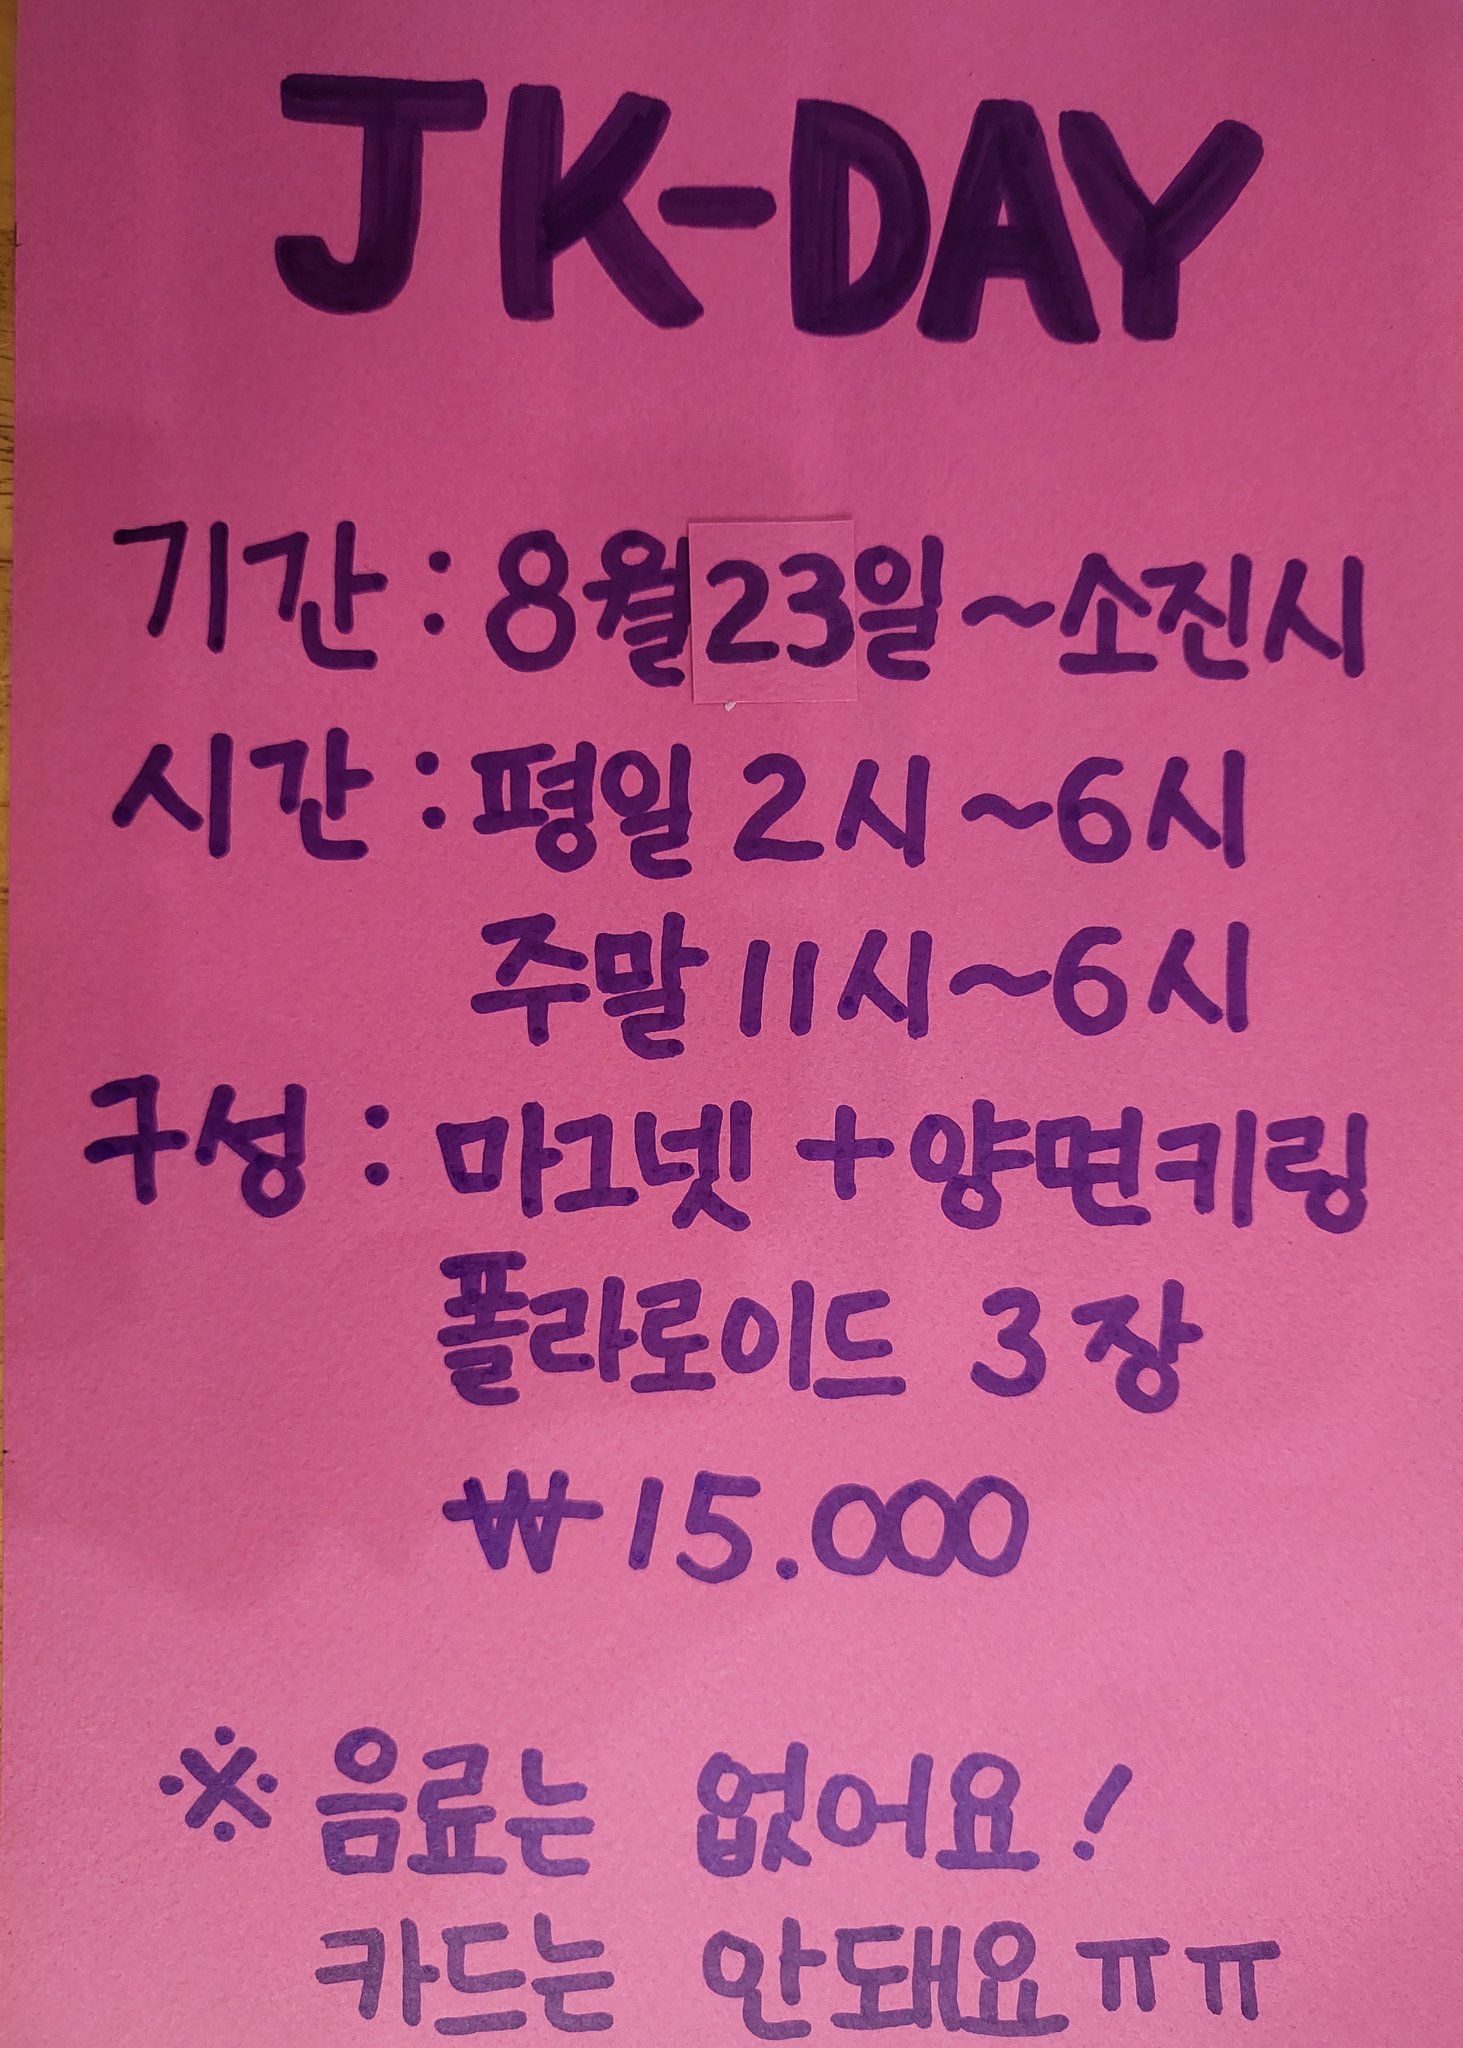 JK-DAY
기간 : 8월 23일 ~ 소진시
시간 : 평일 2시 ~ 6시
주말 11시 ~ 6시
구성 : 마그넷 + 양면키링
폴라로이드 3장
₩15.000
※ 음료는 없어요!
카드는 안돼요ㅠㅠ